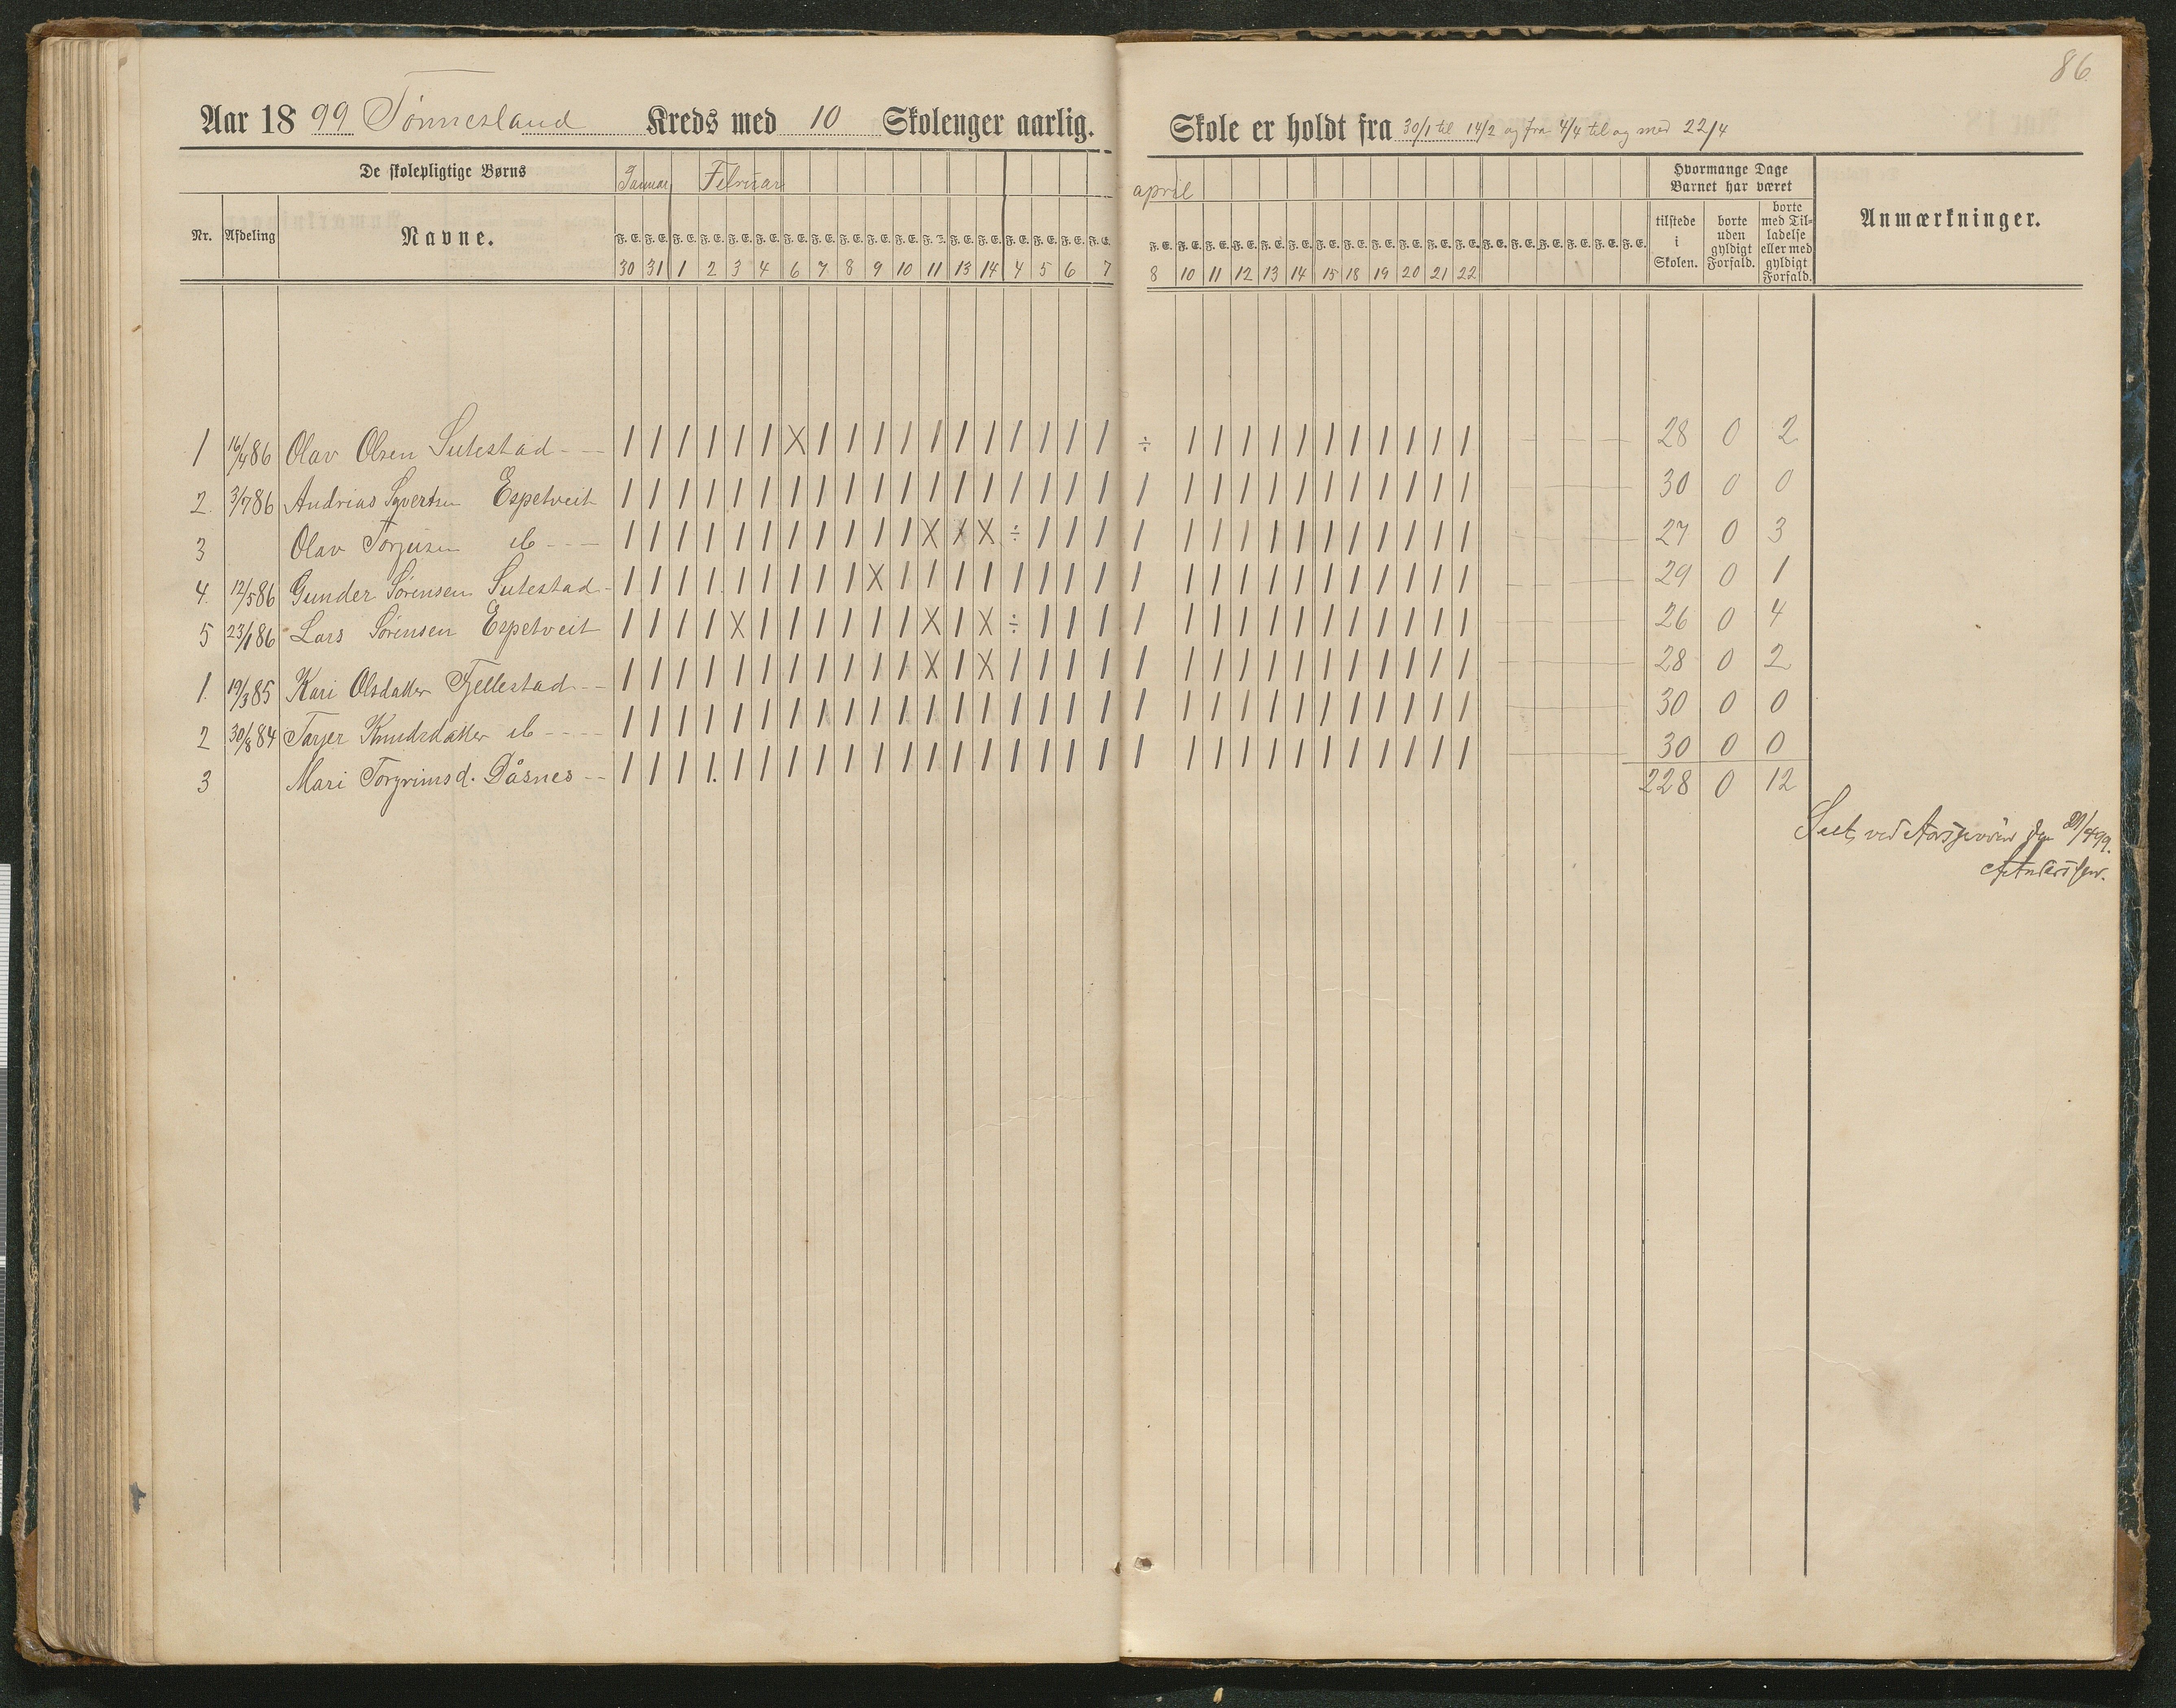 86
Aar 1899 Tønnesland Kreds med 10 Skoleuger aarlig. Skole er holdt fra 30/1 til 14/2 og fra 4/4 til og med 22/4
De skolepligtige Børns Januar Februar april Hvormange Dage Barnet har været
Nr. Afdeling Navne. F. E. F. E. F. E. F. E. F. E. F. E. F. E. F. E. F. E. F. E. F. E. F. E. F. E. F. E. F. E. F. E. F. E. F. E. F. E. F. E. F. E. F. E. F. E. F. E. F. E. F. E. F. E. F. E. F. E. F. E. F. E. F. E. F. E. F. E. F. E. F. E. tilstede i Skolen. borte uden gyldigt Forfald. borte med Tilladelse eller med gyldigt Forfald. Anmærkninger.
30 31 1 2 3 4 6 7 8 9 10 11 13 14 4 5 6 7 8 10 11 12 13 14 15 18 19 20 21 22
1 16/4 86 Olav Olsen Sutestad - - / / / / / / X / / / / / / / / / / / ÷ / / / / / / / / / / / 28 0 2
2. 3/7 86 Andrias Syvertsen Espetveit / / / / / / / / / / / / / / / / / / / / / / / / / / / / / / 30 0 0
3 Olav Torjusen ib - - - / / / / / / / / / / / X X X ÷ / / / / / / / / / / / / / / / 27 0 3
4. 12/5 86 Gunder Sørensen Sutestad - / / / / / / / / / X / / / / / / / / / / / / / / / / / / / / 29 0 1
5 23/1 86 Lars Sørensen Espetveit / / / / X / / / / / / X / X ÷ / / / / / / / / / / / / / / / 26 0 4
1. 19/3 85 Kari Olsdatter Fjellestad - - / / / / / / / / / / / X / X / / / / / / / / / / / / / / / / 28 0 2
2 30/8 84 Tarjer Knudsdatter ib - - - - / / / / / / / / / / / / / / / / / / / / / / / / / / / / / / 30 0 0
3 Mari Torgrimsd. Dåsnes - - / / / / / / / / / / / / / / / / / / / / / / / / / / / / / / 30 0 0
228 0 12